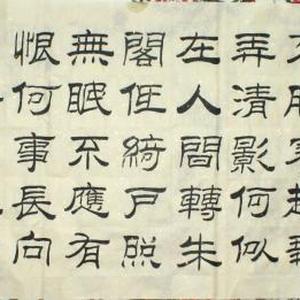 弄清影何似
在人間轉朱
閣低綺戶照
無眠不應有
恨何事長向